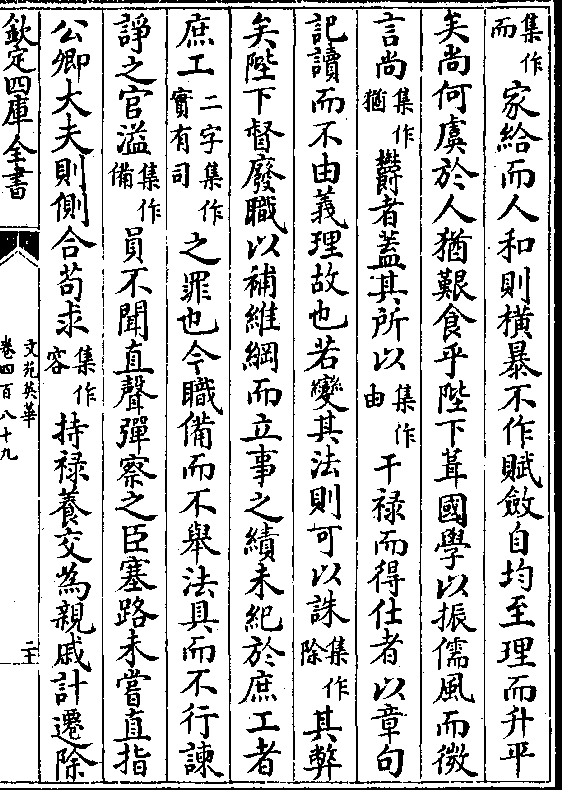 集作而家給而人和則橫暴不作賦斂自均至理而升平
矣尚何虞於人猶艱食乎陛下葺國學以振儒風而微
言尚集作猶鬱者蓋其所以集作由干祿而得仕者以章句
記讀而不由義理故也若變其法則可以誅集作除其弊
矣陛下督廢職以補維綱而立事之績未紀於庶工者
庶工二字集作實有司之罪也今職備而不舉法具而不行諫
諍之官溢集作備員不聞直聲彈察之臣塞路未嘗直指
公卿大夫則側合苟求集作容持祿養交為親戚計遷除
欽定四庫全書
文苑英華
卷四百八十九
二十